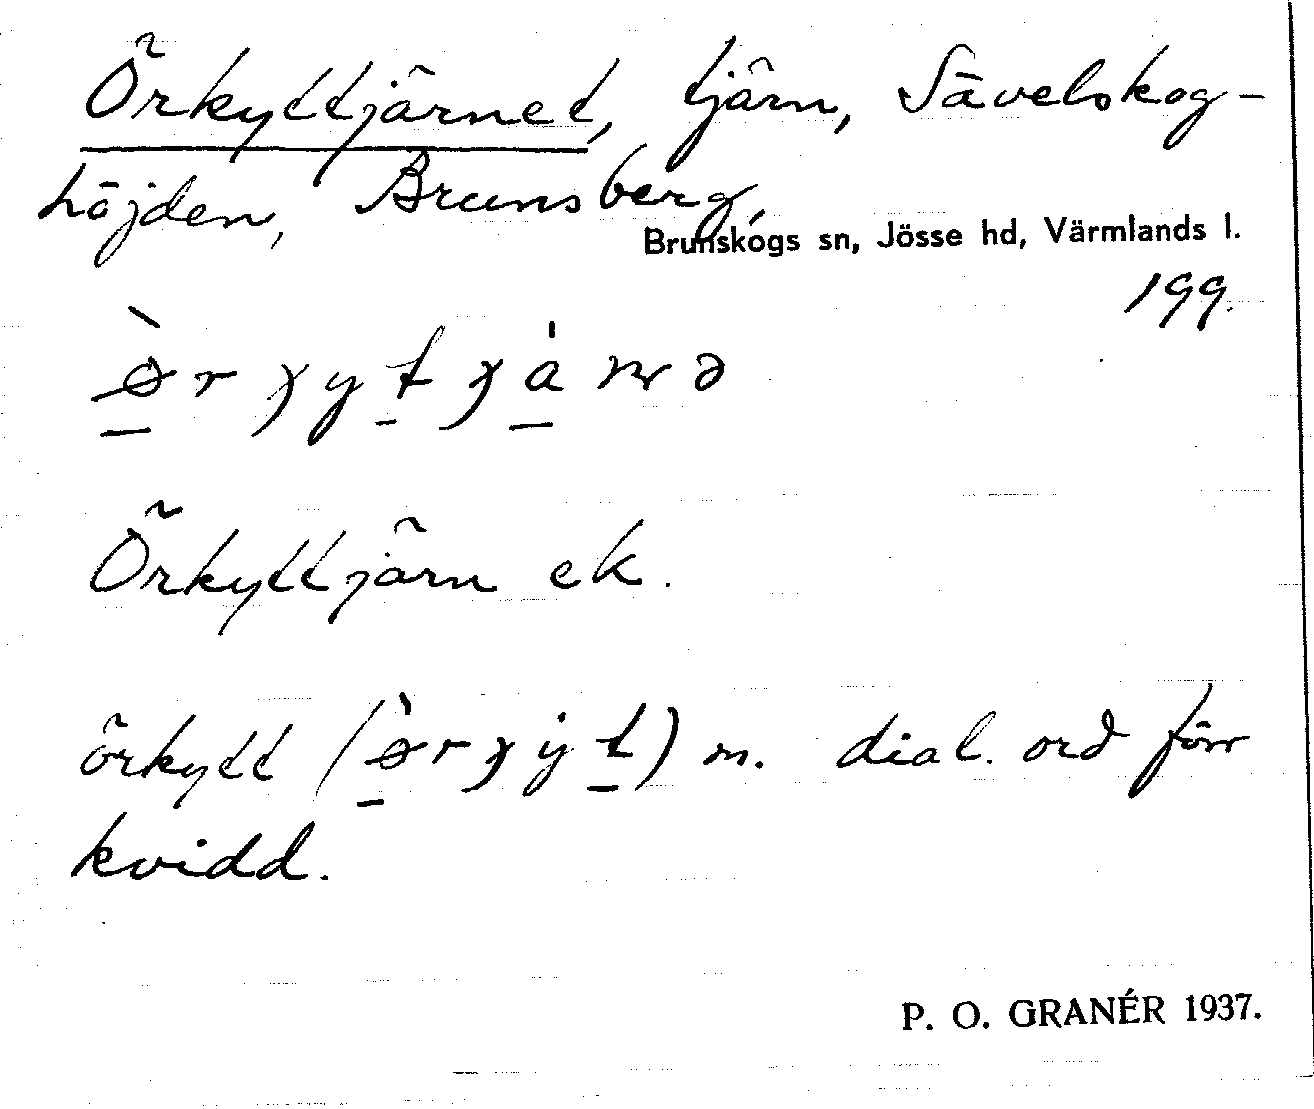 Örkyttjärnet, tjärn, Sävelskog-
höjden, Brunsberg,
Brunskogs sn, Jösse hd, Värmlands l.
199.
Örkyttjärn ek.
örkytt m. dial. ord för
kvidd.
P. O. GRANÉR 1937.